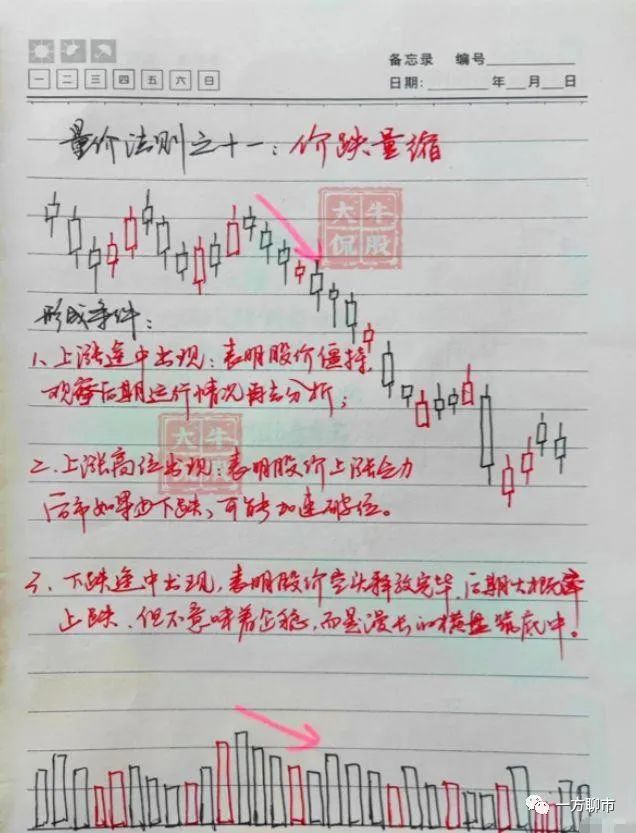 备忘录 编号
一 二 三 四 五 六 日
日期: 年 月 日
量价法则之十一:价跌量缩
大牛
侃股
形成条件:
1、上涨途中出现:表明股价僵持,
观察后期运行情况再去分析;
大牛
侃股
二、上涨高位出现:表明股价上涨乏力
后市如果由下跌,可能加速破位。
3、下跌途中出现,表明股价空头释放完毕,后期大概率
止跌,但不意味着企稳,而是漫长的横盘筑底中!
一方聊市